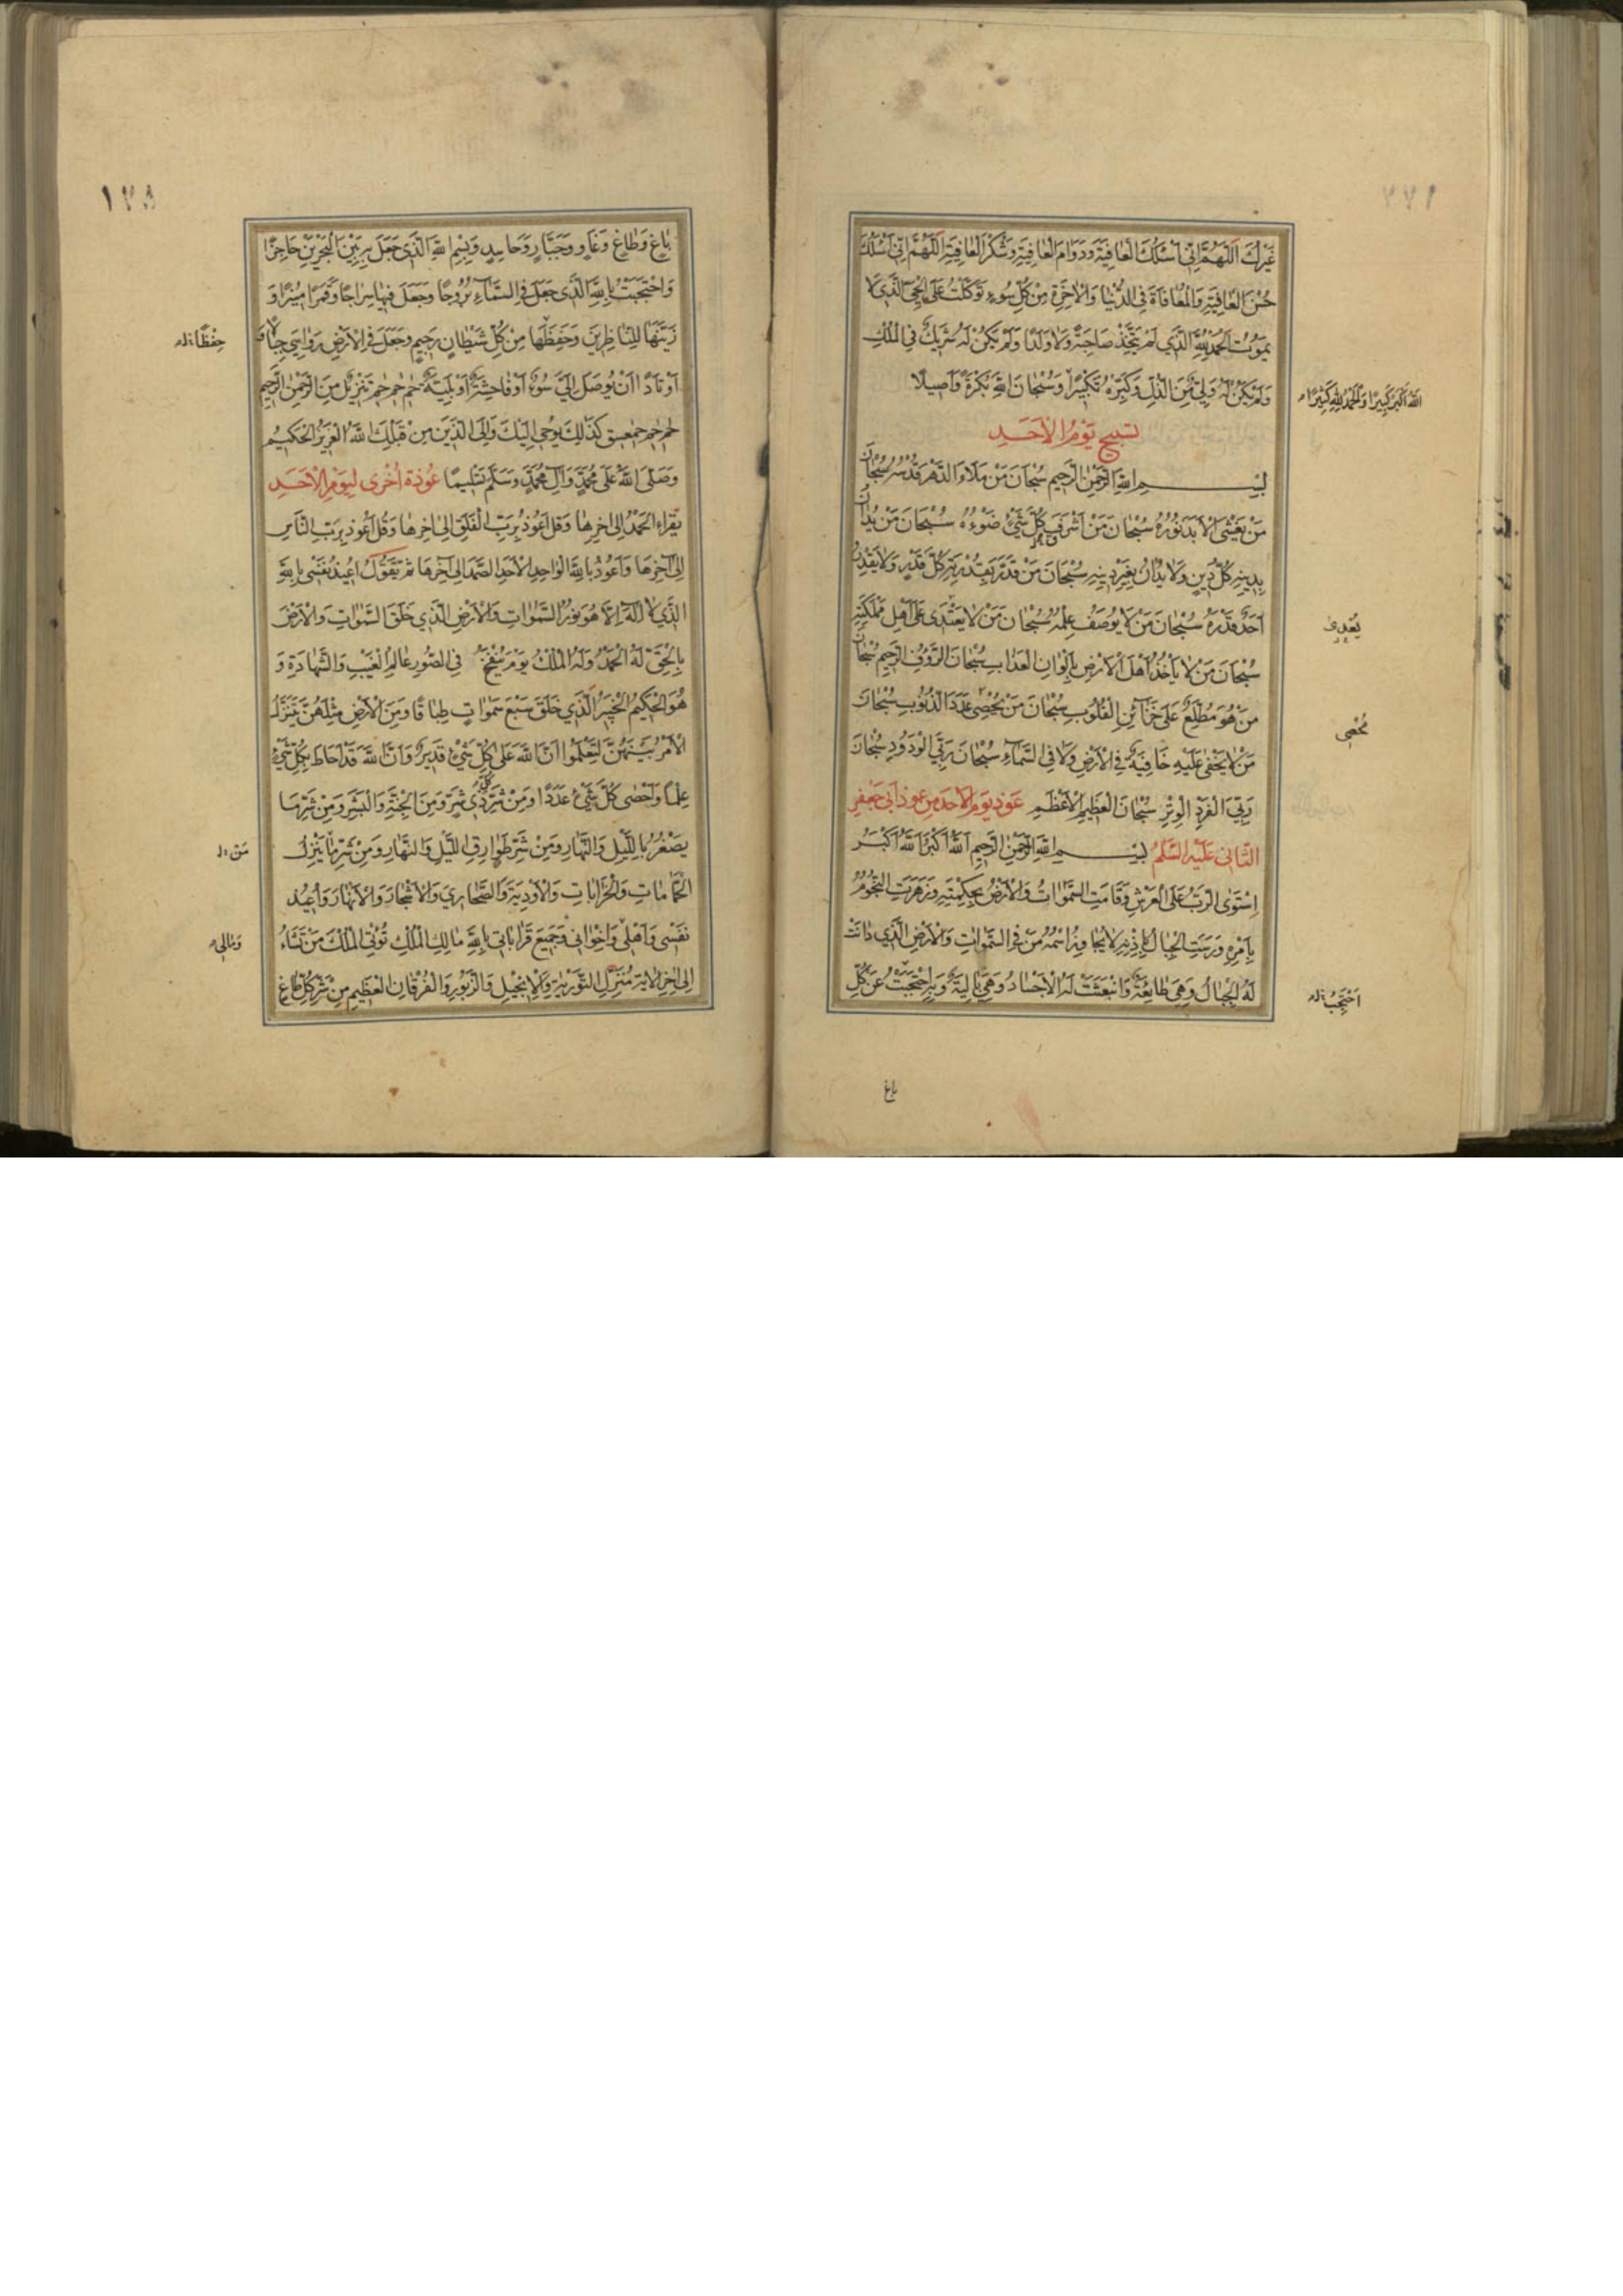 غَيْرُكَ اَللّٰهُمَّ اِنّى اَسْئَلُكَ الْعافِيَةَ وَدَوامَ الْعافِيَةِ وَشُكْرَ الْعافِيَةِ اَللّٰهُمَّ اِنّى اَسْئَلُكَ
حُسْنَ الْعافِيَةِ وَالْمُعافاةَ فِى الدُّنْيا وَالْاخِرَةِ مِنْ كُلِّ سُوءٍ تَوَكَّلْتُ عَلَى الْحَىِّ الَّذى لا
يَمُوتُ اَلْحَمْدُ لِلّٰهِ الَّذى لَمْ يَتَّخِذْ صاحِبَةً وَلا وَلَدًا وَلَمْ يَكُنْ لَهُ شَريكٌ فِى الْمُلْكِ
وَلَمْ يَكُنْ لَهُ وَلِىٌّ مِنَ الذُّلِّ وَكَبِّرْهُ تَكْبيرًا وَسُبْحانَ اللّٰهِ بُكْرَةً وَاَصيلًا
اللهُ اَكْبَرُ كَبيرًا وَالْحَمْدُ لِلّٰهِ كَثيرًا
تسبيح يَوْمُ الْاَحَدِ
بِسْمِ اللّٰهِ الرَّحْمٰنِ الرَّحيمِ سُبْحانَ مَنْ مَلَاَ الدَّهْرَ قُدْسُهُ سُبْحانَ
مَنْ يَغْشَى الْاَبَدَ نُورُهُ سُبْحانَ مَنْ اَشْرَقَ كُلَّ شَىْءٍ ضَوْءُهُ سُبْحانَ مَنْ يُدانُ
بِدينِهِ كُلُّ دينٍ وَلا يُدانُ بِغَيْرِ دينِهِ سُبْحانَ مَنْ قَدَّرَ بِقُدْرَتِهِ كُلَّ قَدَرٍ وَلا يَقْدِرُ
اَحَدٌ قَدْرَهُ سُبْحانَ مَنْ لا يُوصَفُ عِلْمُهُ سُبْحانَ مَنْ لا يَعْتَدى عَلٰى اَهْلِ مَمْلَكَتِهِ
سُبْحانَ مَنْ لا يَأْخُذُ اَهْلَ الْاَرْضِ بِاَلْوانِ الْعَذابِ سُبْحانَ الرَّؤُفِ الرَّحيمِ سُبْحانَ
مَنْ هُوَ مُطَّلِعٌ عَلٰى خَزآئِنِ الْقُلُوبِ سُبْحانَ مَنْ يُحْصى عَدَدَ الذُّنُوبِ سُبْحانَ
مُحْصى
مَنْ لا يَخْفٰى عَلَيْهِ خافِيَةٌ فِى الْاَرْضِ وَلا فِى السَّمآءِ سُبْحانَ رَبِّىَ الْوَدُودِ سُبْحانَ
رَبِّىَ الْفَرْدِ الْوِتْرِ سُبْحانَ الْعَظيمِ الْاَعْظَمِ عَوذ يَوم الاحد من عوذ ابى جعفر
الثّانى عَلَيْهِ السَّلمُ بِسْمِ اللّٰهِ الرَّحْمٰنِ الرَّحيمِ اَللّٰهُ اَكْبَرُ اَللّٰهُ اَكْبَرُ
اِسْتَوَى الرَّبُّ عَلَى الْعَرْشِ وَقامَتِ السَّمٰواتُ وَالْاَرْضُ بِحِكْمَتِهِ وَزَهَرَتِ النُّجُومُ
بِاَمْرِهِ وَرَسَتِ الْجِبالُ بِاِذْنِهِ لا يُجاوِزُ اسْمُهُ مَنْ فِى السَّمٰواتِ وَالْاَرْضِ الَّذى دانَتْ
لَهُ الْجِبالُ وَهِىَ طائِعَةٌ وَانْبَعَثَتْ لَهُ الْاَجْسادُ وَهِىَ بالِيَةٌ وَبِهِ احْتَجَبْتُ عَنْ كُلِّ
باغ
١٧٨
باغٍ وَطاغٍ وَعادٍ وَجَبّارٍ وَحاسِدٍ وَبِسْمِ اللّٰهِ الَّذى جَعَلَ بِهِ بَيْنَ الْبَحْرَيْنِ حاجِزًا
وَاحْتَجَبْتُ بِاللّٰهِ الَّذى جَعَلَ فِى السَّمآءِ بُرُوجًا وَجَعَلَ فيها سِراجًا وَقَمَرًا مُنيرًا وَ
زَيَّنَها لِلنّاظِرينَ وَحَفِظَها مِنْ كُلِّ شَيْطانٍ رَجيمٍ وَجَعَلَ فِى الْاَرْضِ رَواسِىَ جِبالًا وَ
اَوْتادًا اَنْ يُوصَلَ اِلَىَّ سُوءٌ اَوْ فاحِشَةٌ اَوْ بَلِيَّةٌ حٰم حٰم حٰم تَنْزيلٌ مِنَ الرَّحْمٰنِ الرَّحيمِ
حٰم حٰم حٰمعسق كَذٰلِكَ يُوحى اِلَيْكَ وَاِلَى الَّذينَ مِنْ قَبْلِكَ اللّٰهُ الْعَزيزُ الْحَكيمُ
وَصَلَّى اللّٰهُ عَلٰى مُحَمَّدٍ وَآلِ مُحَمَّدٍ وَسَلَّمَ تَسْليمًا عُوذَة اُخْرى لِيَوْمِ الْاَحَدِ
يَقْراءُ الْحَمْدُ اِلٰى اخِرِها وَقُلْ اَعُوذُ بِرَبِّ الْفَلَقِ اِلٰى اخِرِها وَقُلْ اَعُوذُ بِرَبِّ النّاسِ
اِلٰى آخِرِها وَاَعُوذُ بِاللّٰهِ الْواحِدِ الْاَحَدِ الصَّمَدِ اِلٰى آخِرِها ثُمَّ تَقُولُ اُعيذُ نَفْسى بِاللّٰهِ
الَّذى لا اِلٰهَ اِلّا هُوَ نُورُ السَّمٰواتِ وَالْاَرْضِ الَّذى خَلَقَ السَّمٰواتِ وَالْاَرْضَ
بِالْحَقِّ لَهُ الْحَمْدُ وَلَهُ الْمُلْكُ يَوْمَ يُنْفَخُ فِى الصُّورِ عالِمُ الْغَيْبِ وَالشَّهادَةِ وَ
هُوَ الْحَكيمُ الْخَبيرُ الَّذى خَلَقَ سَبْعَ سَمٰواتٍ طِباقًا وَمِنَ الْاَرْضِ مِثْلَهُنَّ يَتَنَزَّلُ
الْاَمْرُ بَيْنَهُنَّ لِتَعْلَمُوا اَنَّ اللّٰهَ عَلٰى كُلِّ شَىْءٍ قَديرٌ وَاَنَّ اللّٰهَ قَدْ اَحاطَ بِكُلِّ شَىْءٍ
عِلْمًا وَاَحْصٰى كُلَّ شَىْءٍ عَدَدًا وَمِنْ شَرِّ كُلِّ ذى شَرٍّ وَمِنَ الْجِنَّةِ وَالْبَشَرِ وَمِنْ شَرِّ ما
يَصْغُرُ بِاللَّيْلِ وَالنَّهارِ وَمِنْ شَرِّ طَوارِقِ اللَّيْلِ وَالنَّهارِ وَمِنْ شَرِّ ما يَنْزِلُ
الْحَمّاماتِ وَالْخَراباتِ وَالْاَوْدِيَةَ وَالصَّحارِىَ وَالْاَشْجارَ وَالْاَنْهارَ وَاُعيذُ
نَفْسى وَاَهْلى وَاِخْوانى وَجَميعَ قَراباتى بِاللّٰهِ مالِكِ الْمُلْكِ تُؤْتِى الْمُلْكَ مَنْ تَشآءُ
اِلٰى اخِرِ الْايَةِ مُنْزِلِ التَّوْرٰيةِ وَالْاِنْجيلِ وَالزَّبُورِ وَالْفُرْقانِ الْعَظيمِ مِنْ شَرِّ كُلِّ باغٍ